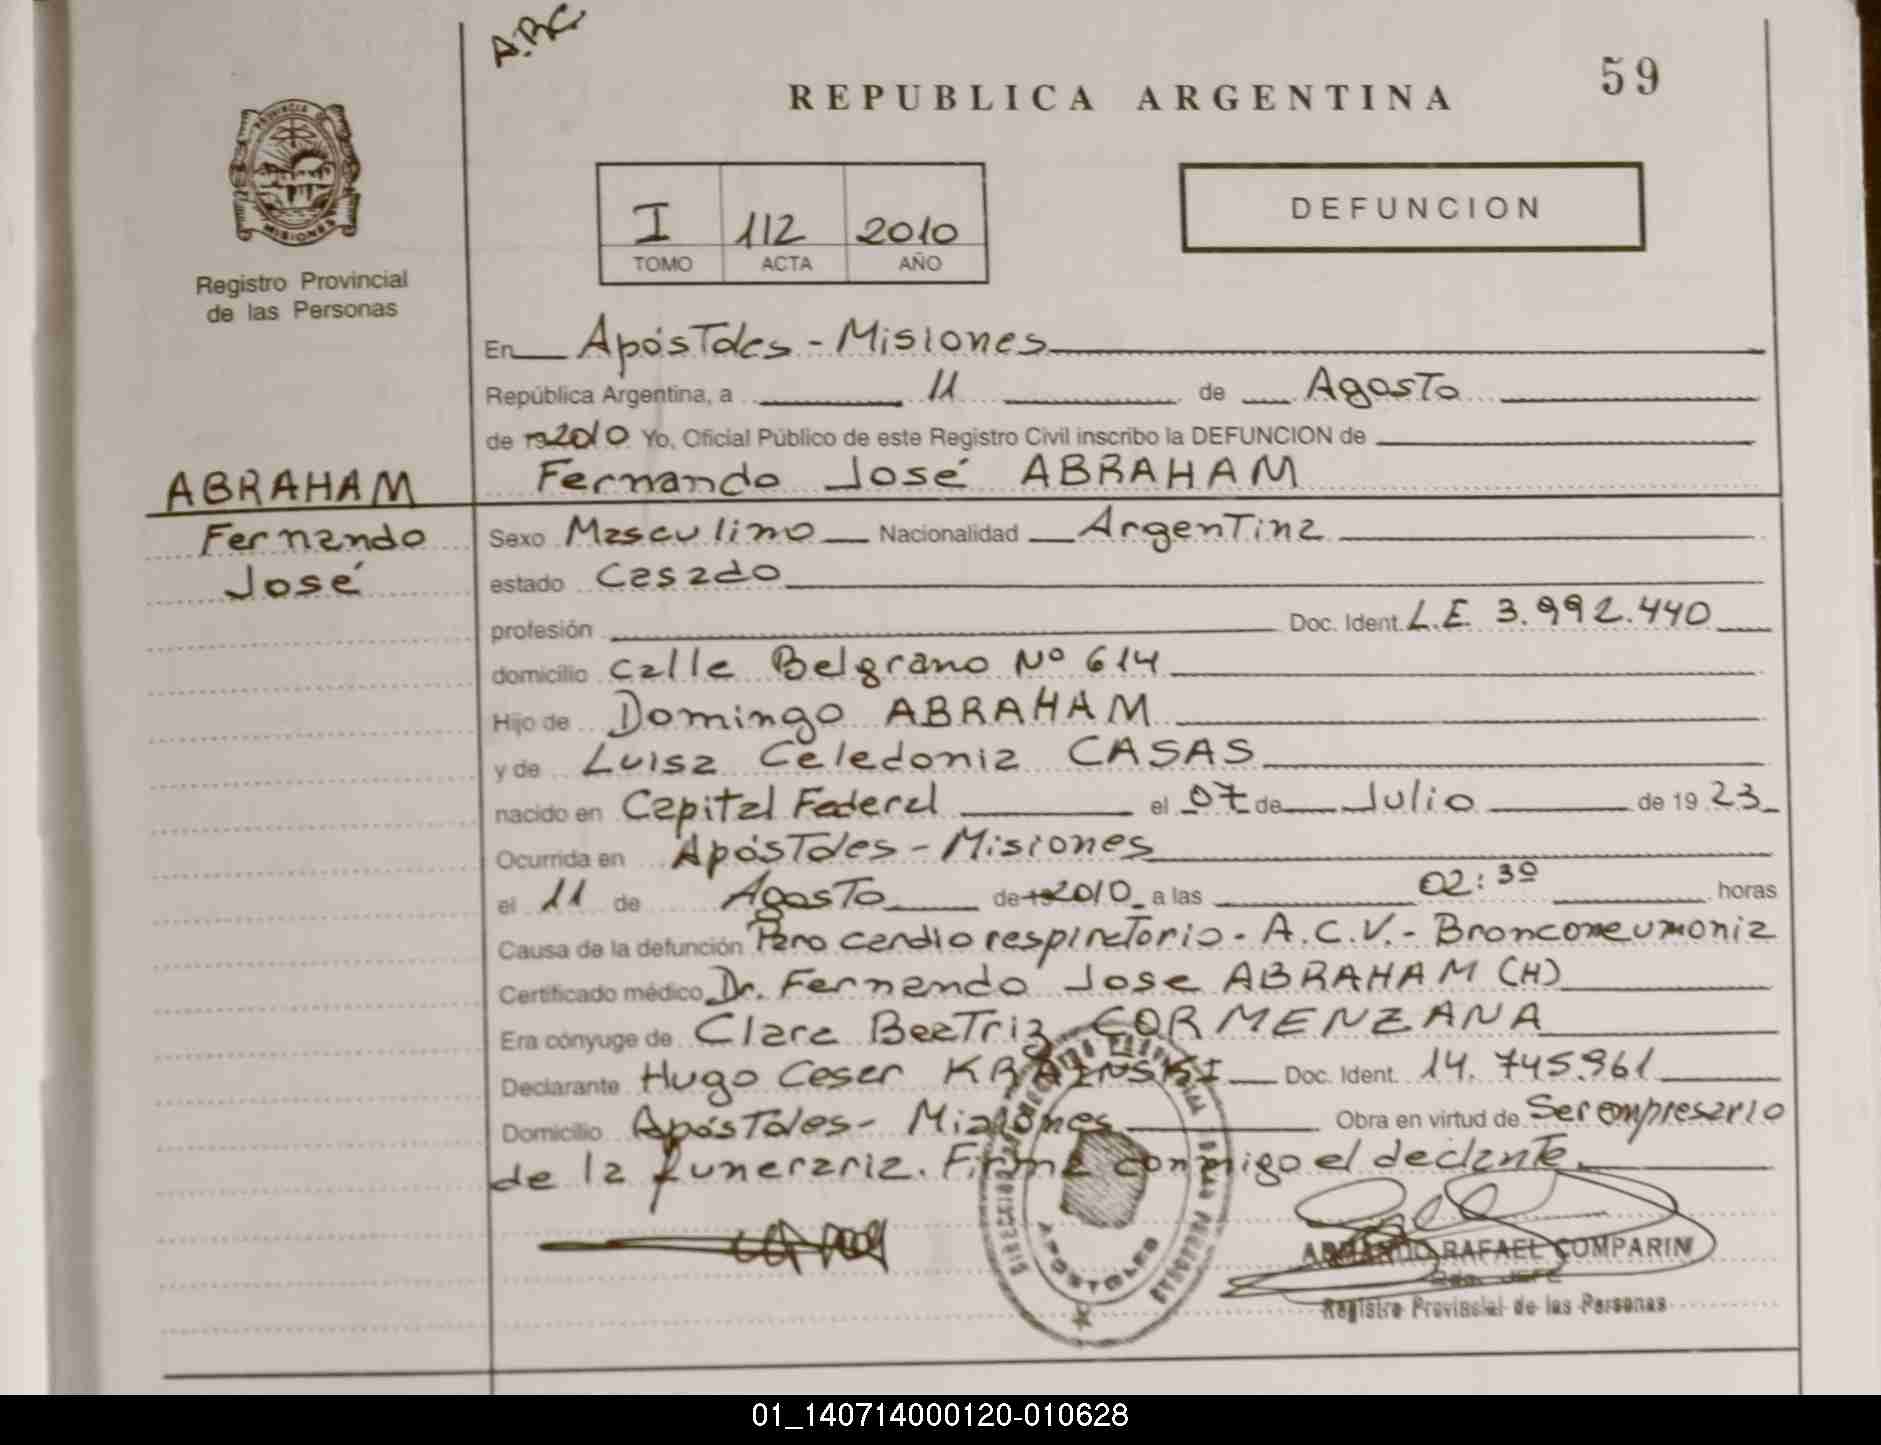 A.B.C.
59
REPUBLICA ARGENTINA
PROVINCIA
MISIONES
Registro Provincial
de las Personas
I 112 2010
TOMO ACTA AÑO
DEFUNCION
En Apóstoles - Misiones
República Argentina, a 11 de Agosto
de 19 2010 Yo, Oficial Público de este Registro Civil inscribo la DEFUNCION de
ABRAHAM Fernando José ABRAHAM
Fernando Sexo Masculino Nacionalidad Argentina
José estado Casado
profesión Doc. Ident. L.E. 3.992.440
domicilio calle Belgrano Nº 614
Hijo de Domingo ABRAHAM
y de Luisa Celedonia CASAS
nacido en Capital Federal el 07 de Julio de 19 23
Ocurrida en Apóstoles - Misiones
el 11 de Agosto de 19 2010 a las 02:30 horas
Causa de la defunción Paro cardio respiratorio - A.C.V. - Bronconeumonia
Certificado médico Dr. Fernando Jose ABRAHAM (H)
Era cónyuge de Clara Beatriz CORMENZANA
Declarante Hugo Cesar KRAINSKI Doc. Ident. 14.745.961
Domicilio Apóstoles - Misiones Obra en virtud de Ser empresario
de la funeraria. Firma conmigo el declante.
APOSTOLES
ARMANDO RAFAEL COMPARIN
JEFE
Registro Provincial de las Personas
01_140714000120-010628